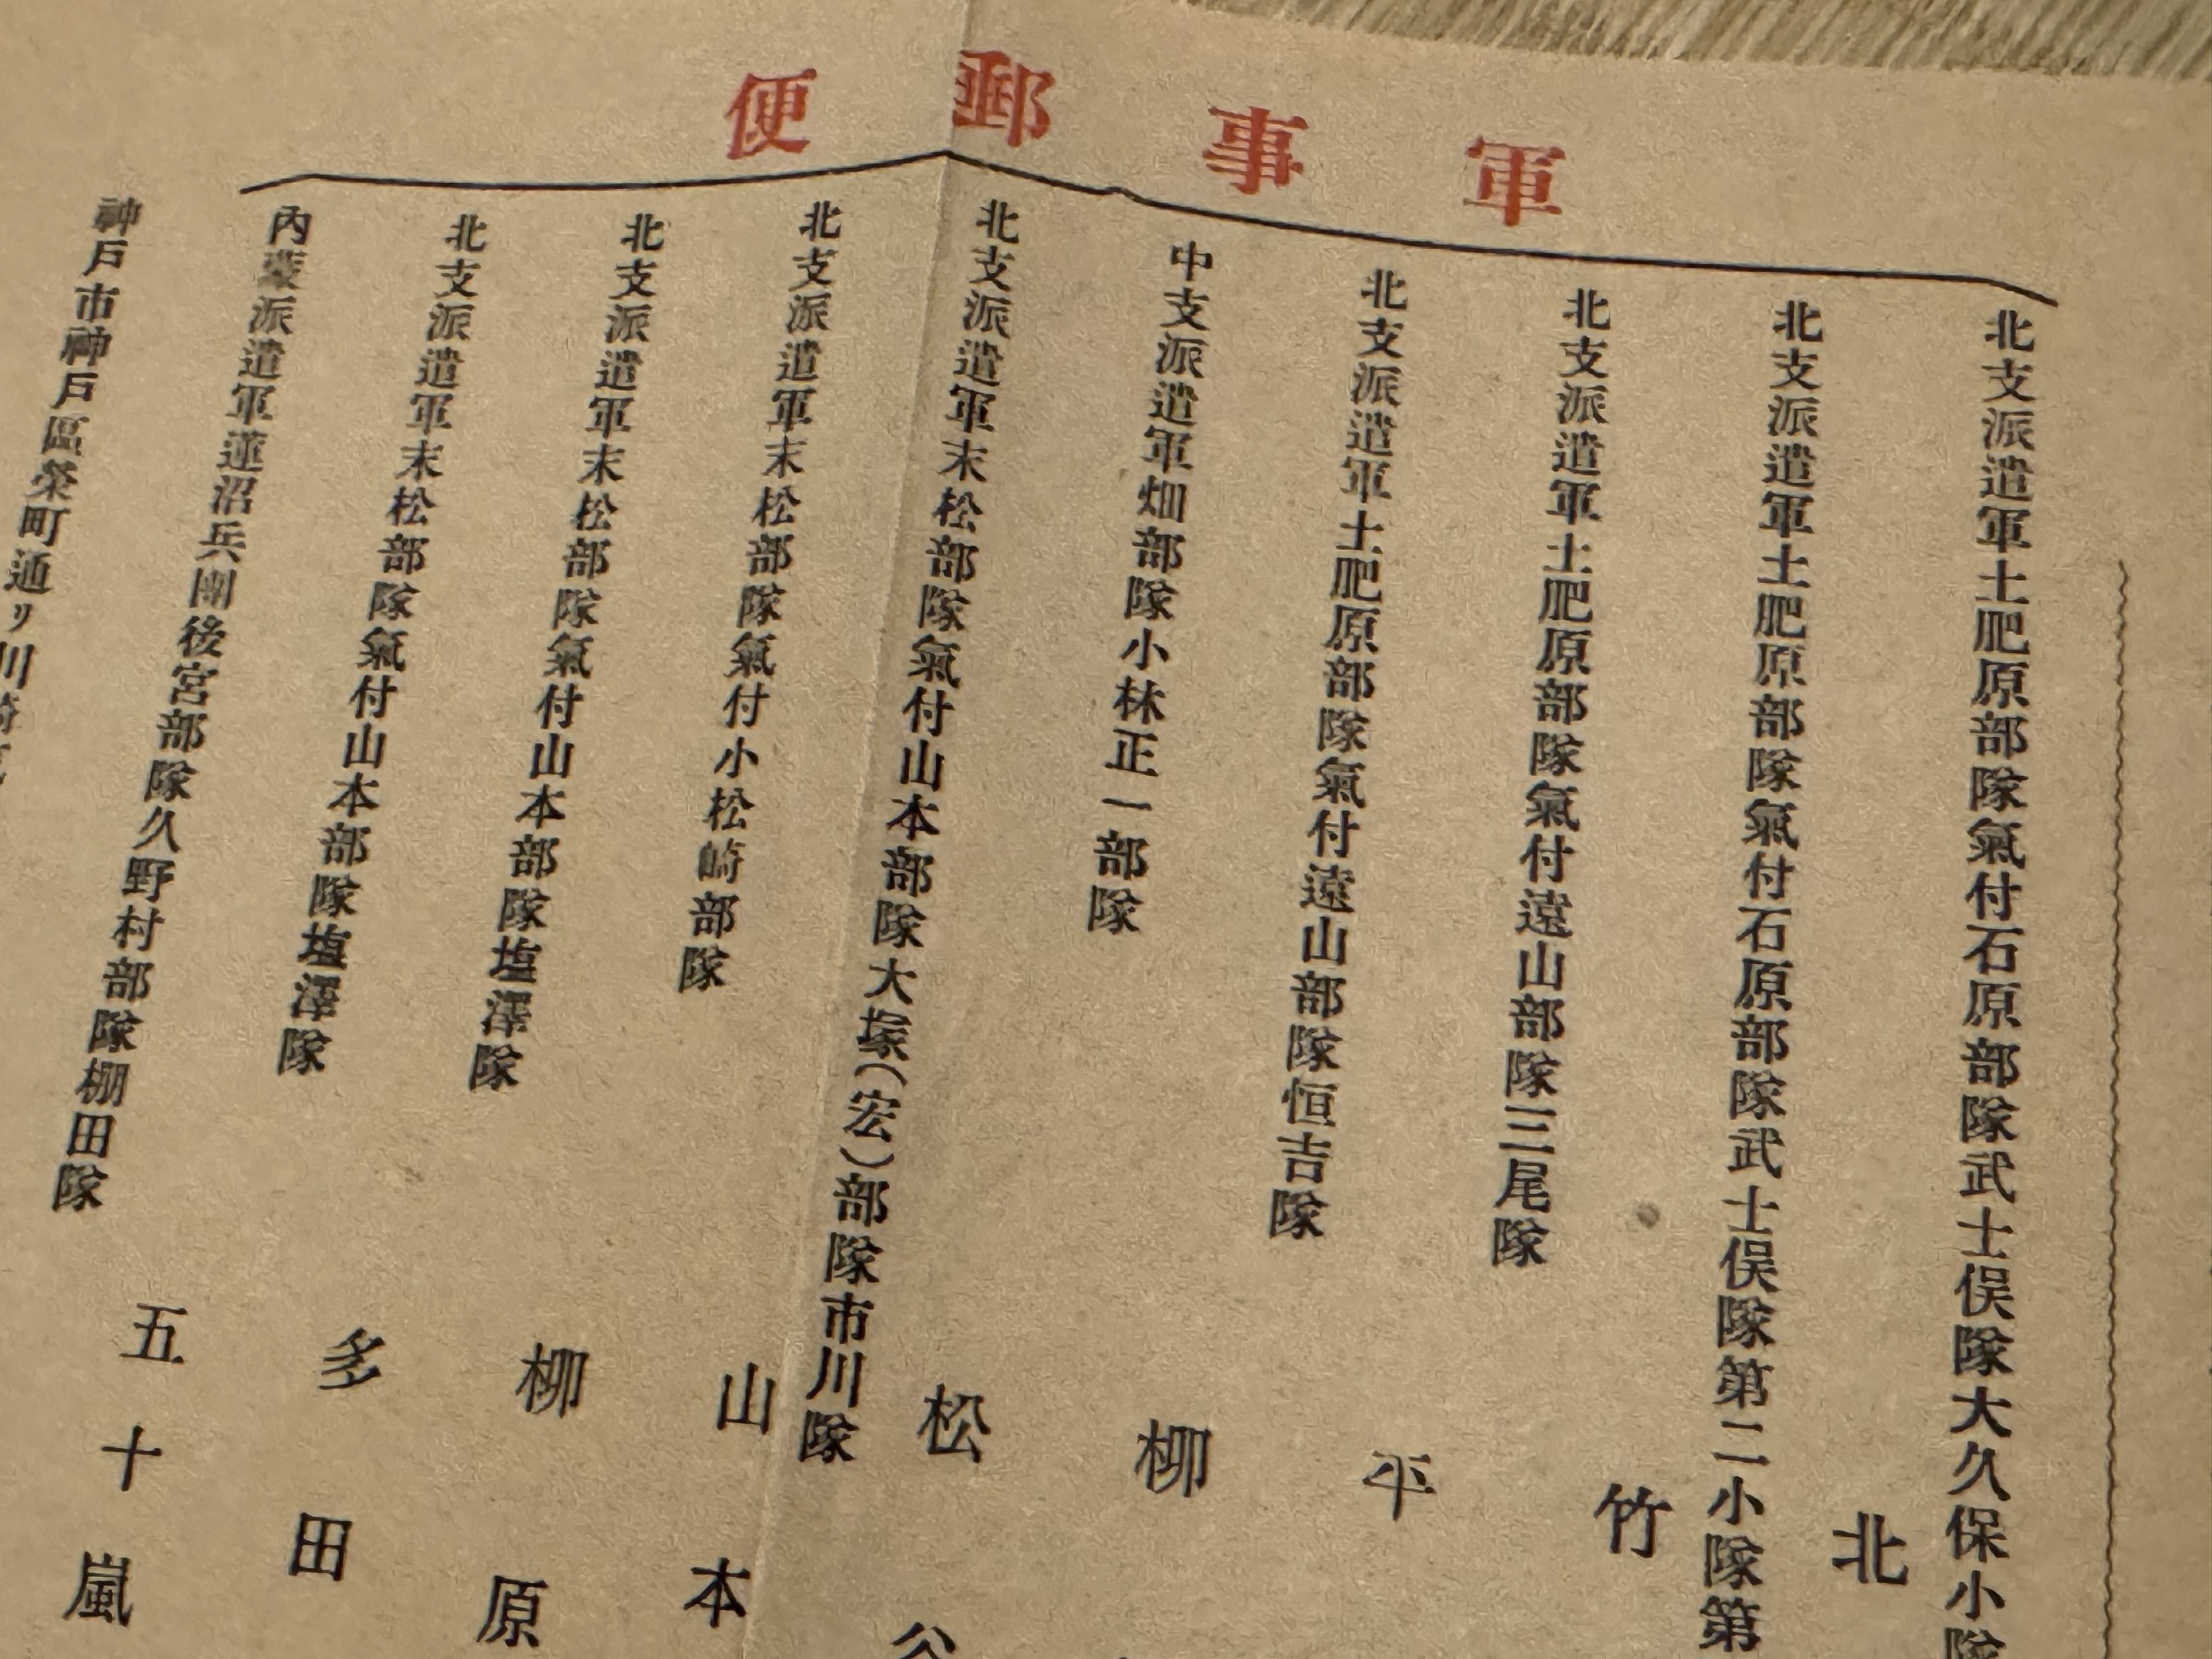 軍事郵便
北支派遣軍土肥原部隊氣付石原部隊武士俣隊大久保小隊
北
北支派遣軍土肥原部隊氣付石原部隊武士俣隊第二小隊第
竹
北支派遣軍土肥原部隊氣付遠山部隊三尾隊
平
北支派遣軍土肥原部隊氣付遠山部隊恒吉隊
柳
中支派遣軍畑部隊小林正一部隊
松
北支派遣軍末松部隊氣付山本部隊大塚(宏)部隊市川隊
山本
北支派遣軍末松部隊氣付小松崎部隊
柳原
北支派遣軍末松部隊氣付山本部隊塩澤隊
多田
北支派遣軍末松部隊氣付山本部隊塩澤隊
五十嵐
內蒙派遣軍蓮沼兵團後宮部隊久野村部隊棚田隊
神戶市神戶區榮町通リ川崎